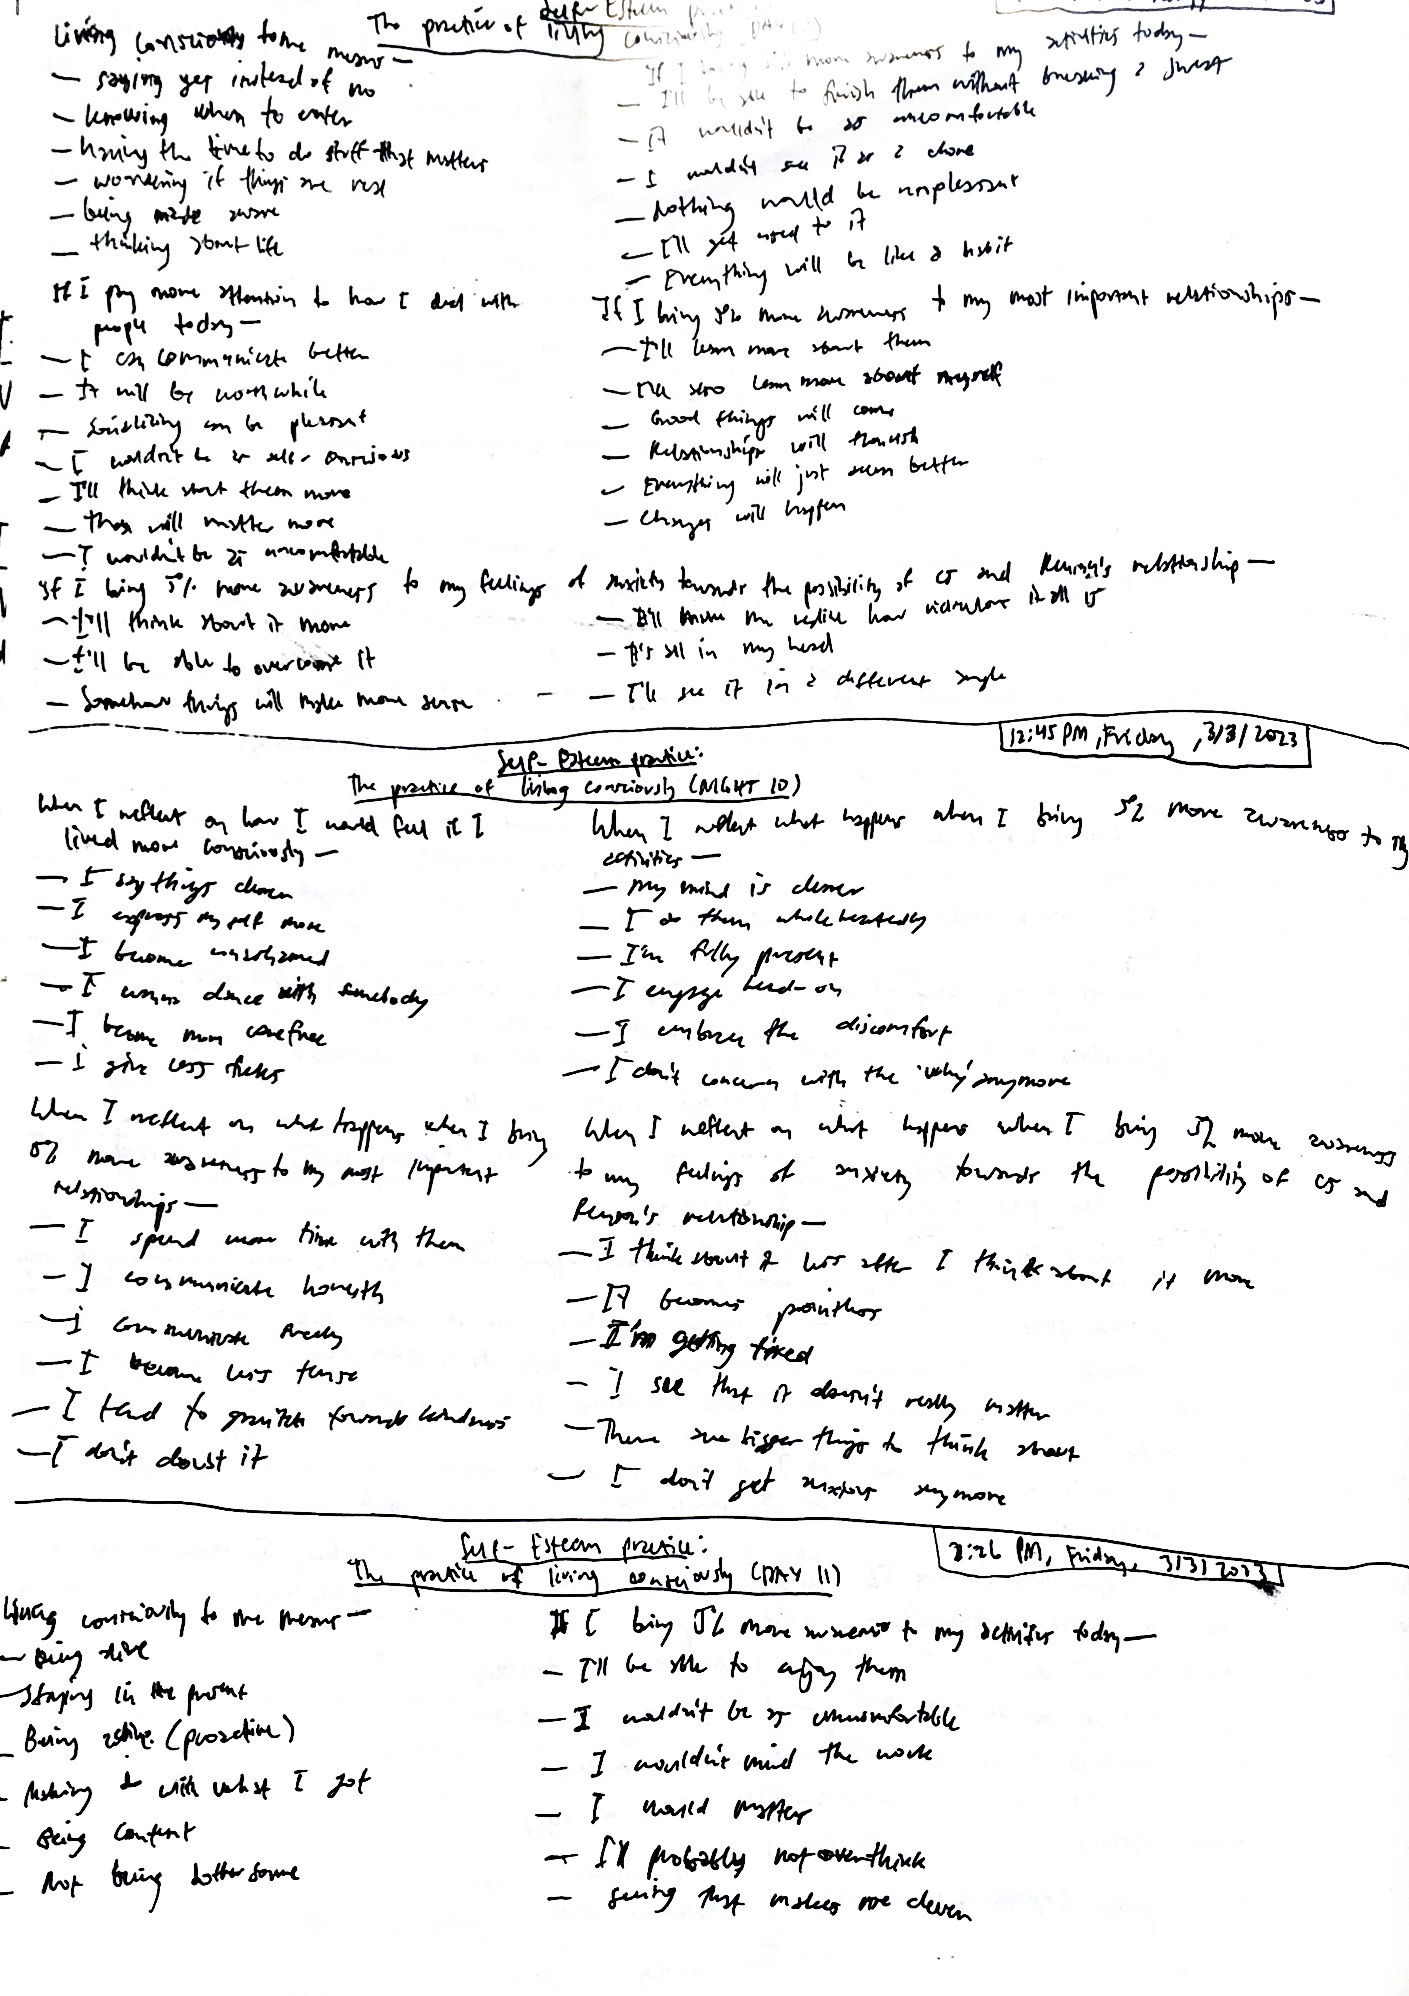 Self-Esteem
The practice of living consciously
Living consciously to me means—
— saying yes instead of no
— knowing when to enter
— having the time to do stuff that matters
— wondering if things are real
— being made aware
— thinking about life
If I pay more attention to how I deal with
people today—
— I can communicate better
— It will be worthwhile
— Socializing can be pleasant
— I wouldn't be as self-conscious
— I'll think about them more
— Those will matter more
— I wouldn't be as uncomfortable
If I bring 5% more awareness to my activities today—
— I'll be able to finish them without breaking a sweat
— It wouldn't be as uncomfortable
— I wouldn't see it as a chore
— Nothing would be unpleasant
— I'll get used to it
— Everything will be like a habit
If I bring 5% more awareness to my most important relationships—
— I'll learn more about them
— I'll also learn more about myself
— Good things will come
— Relationships will flourish
— Everything will just seem better
— Changes will happen
If I bring 5% more awareness to my feelings of anxiety towards the possibility of CJ and relationship—
— I'll think about it more
— I'll be able to overcome it
— Somehow things will make more sense
— It'll make me realize how ridiculous it all is
— It's all in my head
— I'll see it in a different angle
12:45 PM, Friday, 3/3/2023
Self-Esteem practice:
The practice of living consciously (NIGHT 10)
When I reflect on how I would feel if I
lived more consciously—
— I say things clearer
— I express myself more
— I become unashamed
— I wanna dance with somebody
— I become more carefree
— I give less
When I reflect what happens when I bring 5% more awareness to my
activities—
— My mind is clearer
— I do them wholeheartedly
— I'm fully present
— I engage head-on
— I embrace the discomfort
— I don't concern with the 'why' anymore
When I reflect on what happens when I bring
5% more awareness to my most important
relationships—
— I spend more time with them
— I communicate honestly
— I communicate freely
— I become less tense
— I tend to gravitate towards kindness
— I don't doubt it
When I reflect on what happens when I bring 5% more awareness
to my feelings of anxiety towards the possibility of CJ and
relationship—
— I think about it less after I think about it more
— It becomes pointless
— I'm getting tired
— I see that it doesn't really matter
— There are bigger things to think about
— I don't get anxious anymore
2:26 PM, Friday, 3/3/2023
Self-Esteem practice:
The practice of living consciously (DAY 11)
Living consciously to me means—
— Being alive
— Staying in the present
— Being active. (proactive)
— Making do with what I got
— Being content
— Not being bothersome
If I bring 5% more awareness to my activities today—
— I'll be able to enjoy them
— I wouldn't be as uncomfortable
— I wouldn't mind the work
— I would matter
— I'll probably not overthink
— seeing that makes me clever